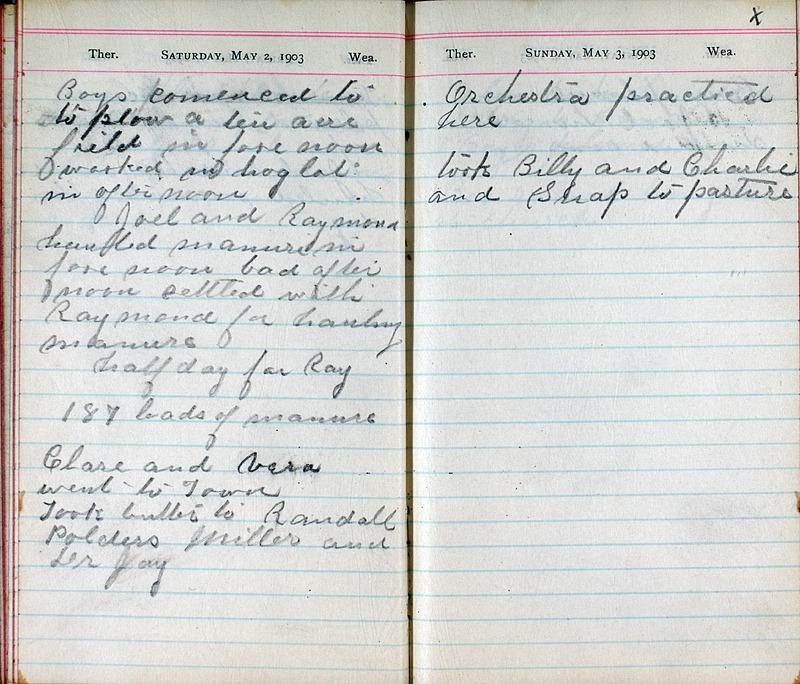 Ther. SATURDAY, MAY 2, 1903 Wea.
Boys comenced to
to plow a ten acre
field in fore noon
I worked in hog lot
in after noon
Joel and Raymond
hauled manure in
fore noon and after
noon settled with
Raymond for hauling
manure
half day for Ray
187 loads of manure
Clare and Vera
went to Town
Took butter to Randall
Polders Miller and
Jay
x
Ther. SUNDAY, MAY 3, 1903 Wea.
Orchestra practied
here
took Billy and Charlie
and Snap to pasture